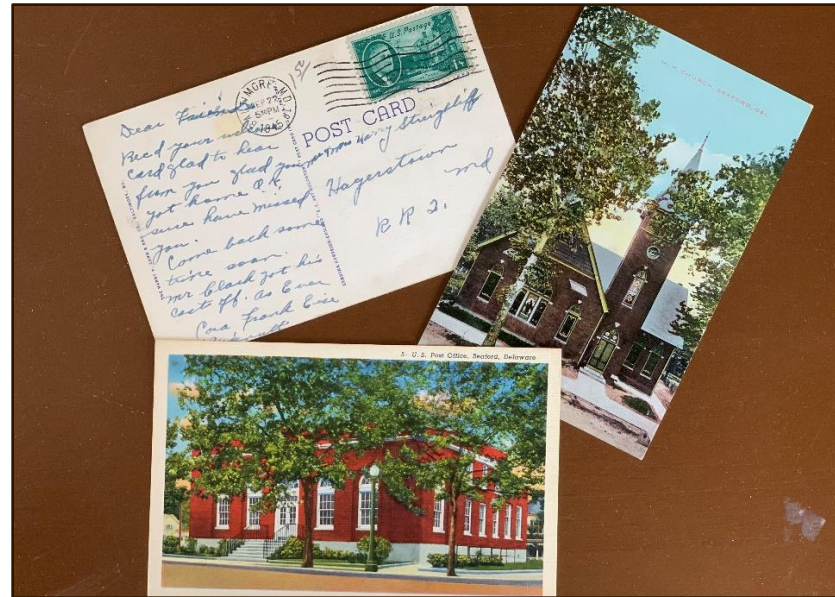 U.S. Postage
1¢
BALTIMORE, MD.
SEP 27
5 30 PM
1945
POST CARD
Dear
Rec'd your
card glad to hear
from you glad you
got home O.K.
sure have missed
you.
Come back some
time soon.
Mr Clark got his
cast off. as Ever
Frank Elsie
Mr & Mrs Harry
Hagerstown
Md
R R 2.
M. E. CHURCH, SEAFORD, DEL.
5—U. S. Post Office, Seaford, Delaware